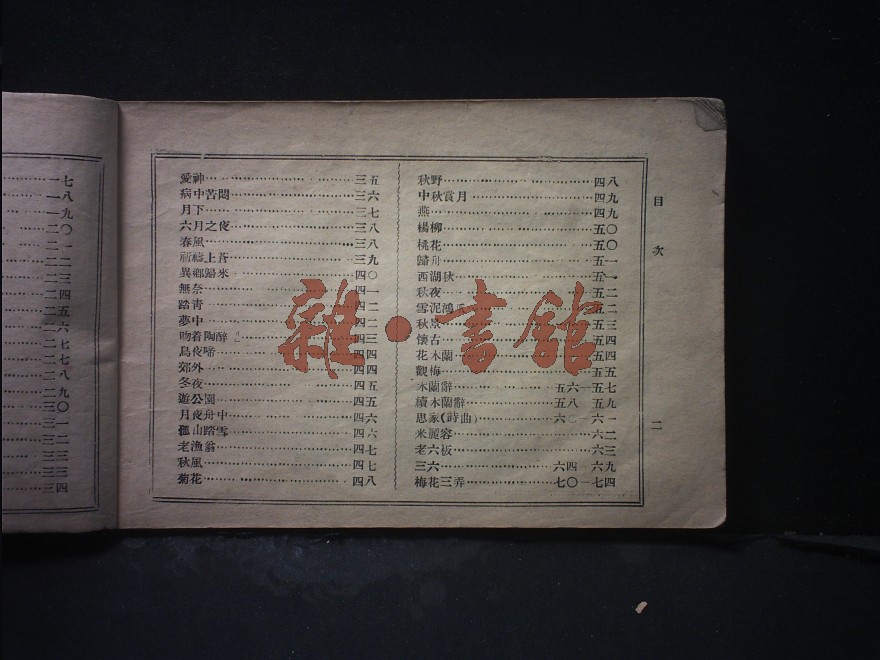 一七
一八
一九
二〇
二一
二二
二三
二四
二五
二六
二七
二七
二八
二九
三〇
三一
三二
三三
三三
三四
愛神……三五
病中苦悶……三六
月下……三七
六月之夜……三八
春風……三八
祈禱上蒼……三九
異鄉歸來……四〇
無奈……四一
踏靑……四二
夢中……四二
吻着陶醉……四三
烏夜啼……四四
郊外……四四
冬夜……四五
遊公園……四五
月夜舟中……四六
孤山踏雪……四六
老漁翁……四七
秋風……四七
菊花……四八
秋野……四八
中秋賞月……四九
燕……四九
楊柳……五〇
桃花……五〇
歸舟……五一
西湖秋……五一
秋夜……五二
雪泥鴻爪……五二
秋景……五三
懷古……五四
花木蘭……五四
觀梅……五五
木蘭辭……五六—五七
續木蘭辭……五八—五九
思家(詩曲)……六〇—六一
米麗容……六二
老六板……六三
三六……六四—六九
梅花三弄……七〇—七四
目次
二
雜·書館